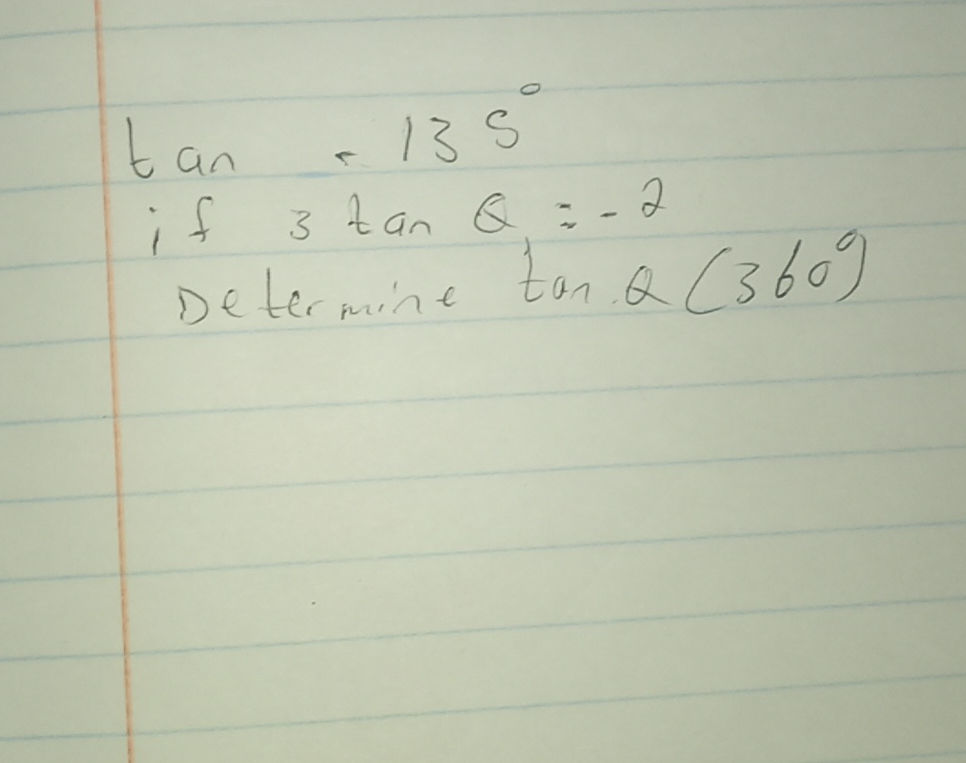 tan - 135°
if 3 tan θ = -2
Determine tan.θ (360°)